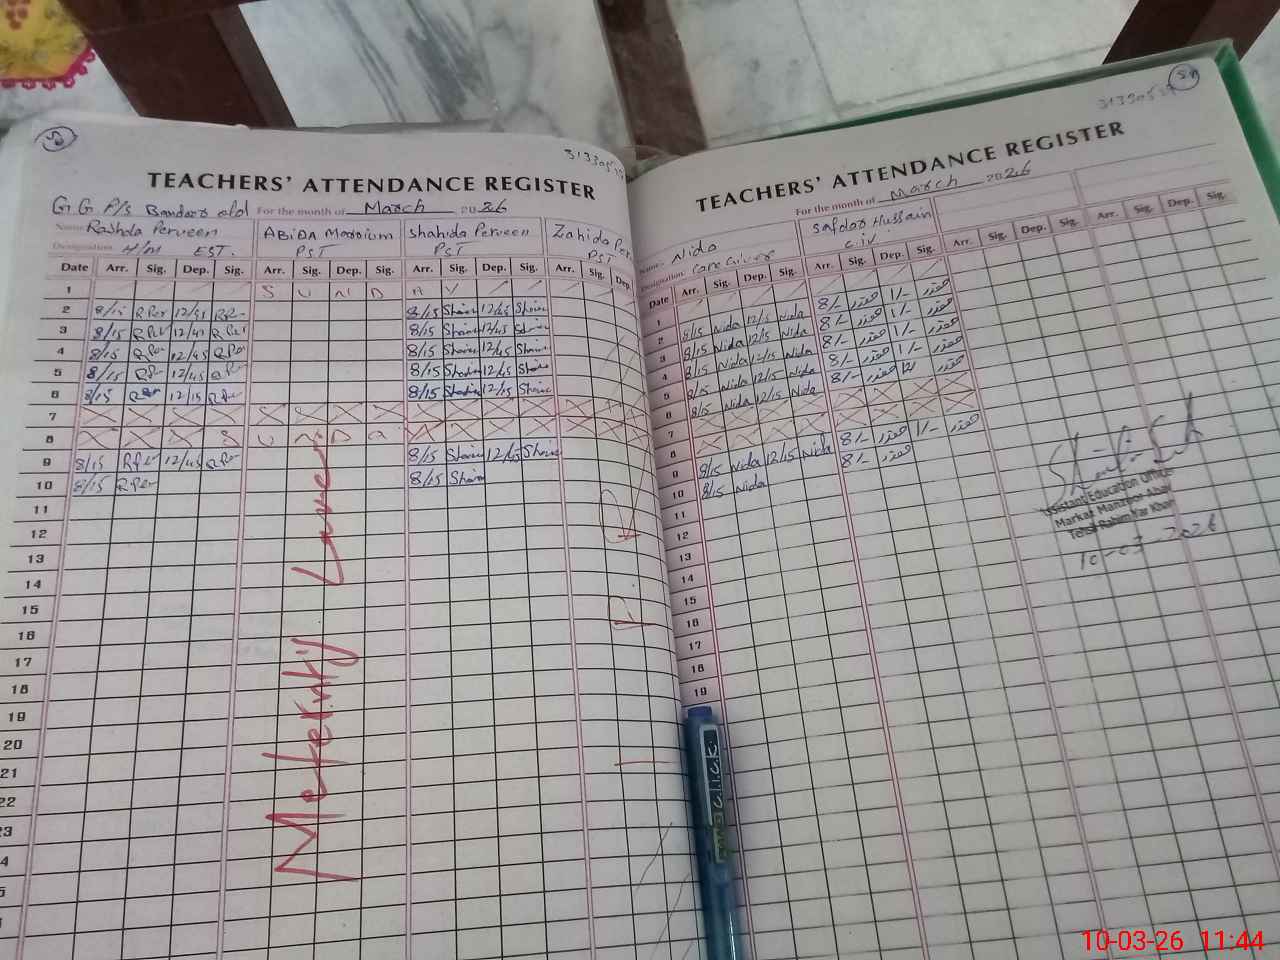 TEACHERS' ATTENDANCE REGISTER
G.G. P/s Bandoor old For the month of March 2026
Name Rashda Perveen ABIDA Marrium Shahida Perveen Zahida Per
Designation H/M EST. PST PST PST
Date Arr. Sig. Dep. Sig. Arr. Sig. Dep. Sig. Arr. Sig. Dep. Sig. Arr. Sig. Dep.
1 S U N D A Y
2 8/15 RPer 8/15 Shain 12/45 Shain
3 8/15 RPer 12/45 RPer 8/15 Shain 12/45 Shain
4 8/15 RPer 12/45 RPer 8/15 Shain 12/45 Shain
5 8/15 RPer 12/45 RPer 8/15 Shain 12/45 Shain
6 8/15 12/15 RPer 8/15 Shain 12/15 Shain
7
8 S U N D A Y
9 8/15 RPer 12/45 RPer 8/15 Shain 12/45 Shain
10 8/15 RPer 8/15 Shain
11
12
13
14
15
16
17
18
19
20
21
22
23
Meternity Leave
TEACHERS' ATTENDANCE REGISTER
For the month of March 2026
Name Nida Safdar Hussain
Designation Care Giver C.IV
Date Arr. Sig. Dep. Sig. Arr. Sig. Dep. Sig. Arr. Sig. Dep. Sig. Arr. Sig. Dep. Sig.
1
2 8/15 Nida 12/15 Nida 8/- صفدر 1/- صفدر
3 8/15 Nida 12/15 Nida 8/- صفدر 1/- صفدر
4 8/15 Nida 12/15 Nida 8/- صفدر 1/- صفدر
5 8/15 Nida 12/15 Nida 8/- صفدر 1/- صفدر
6 8/15 Nida 12/15 Nida 8/- صفدر 12/ صفدر
7
8
9 8/15 Nida 12/15 Nida 8/- صفدر 1/- صفدر
10 8/15 Nida 8/- صفدر
11
12
13
14
15
16
17
18
19
Assistant Education Officer
Markaz Manzoor Abad
Tehsil Rahim Yar Khan
10-03-2026
click
10-03-26 11:44